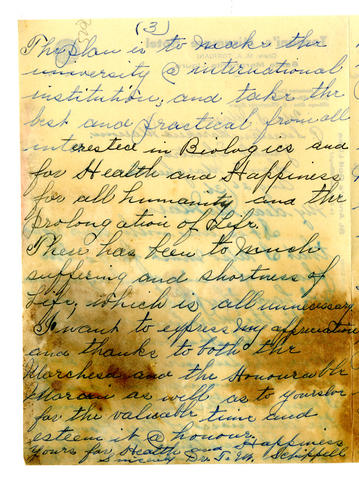 (3)
The plan is to make the
university @ international
institution, and take the
best and practical from all
interested in Biologics and
for Health and Happiness
for all humanity and the
Prolongation of Life.
There has been to much
suffering and shortness of
Life, which is all unnecessary
I want to express my appreciation
and thanks to both the
and the Honourable
as well as to
for the valuable time and
esteem it @ honour.
Yours for Health and Happiness
Sincerely Dr. Schippell